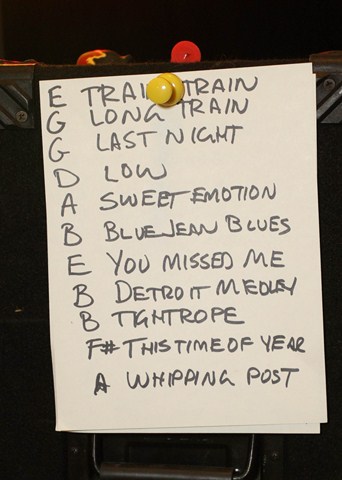 E TRAIN TRAIN
G LONG TRAIN
G LAST NIGHT
D LOW
A SWEET EMOTION
B BLUE JEAN BLUES
E YOU MISSED ME
B DETROIT MEDLEY
B TIGHTROPE
F# THIS TIME OF YEAR
A WHIPPING POST